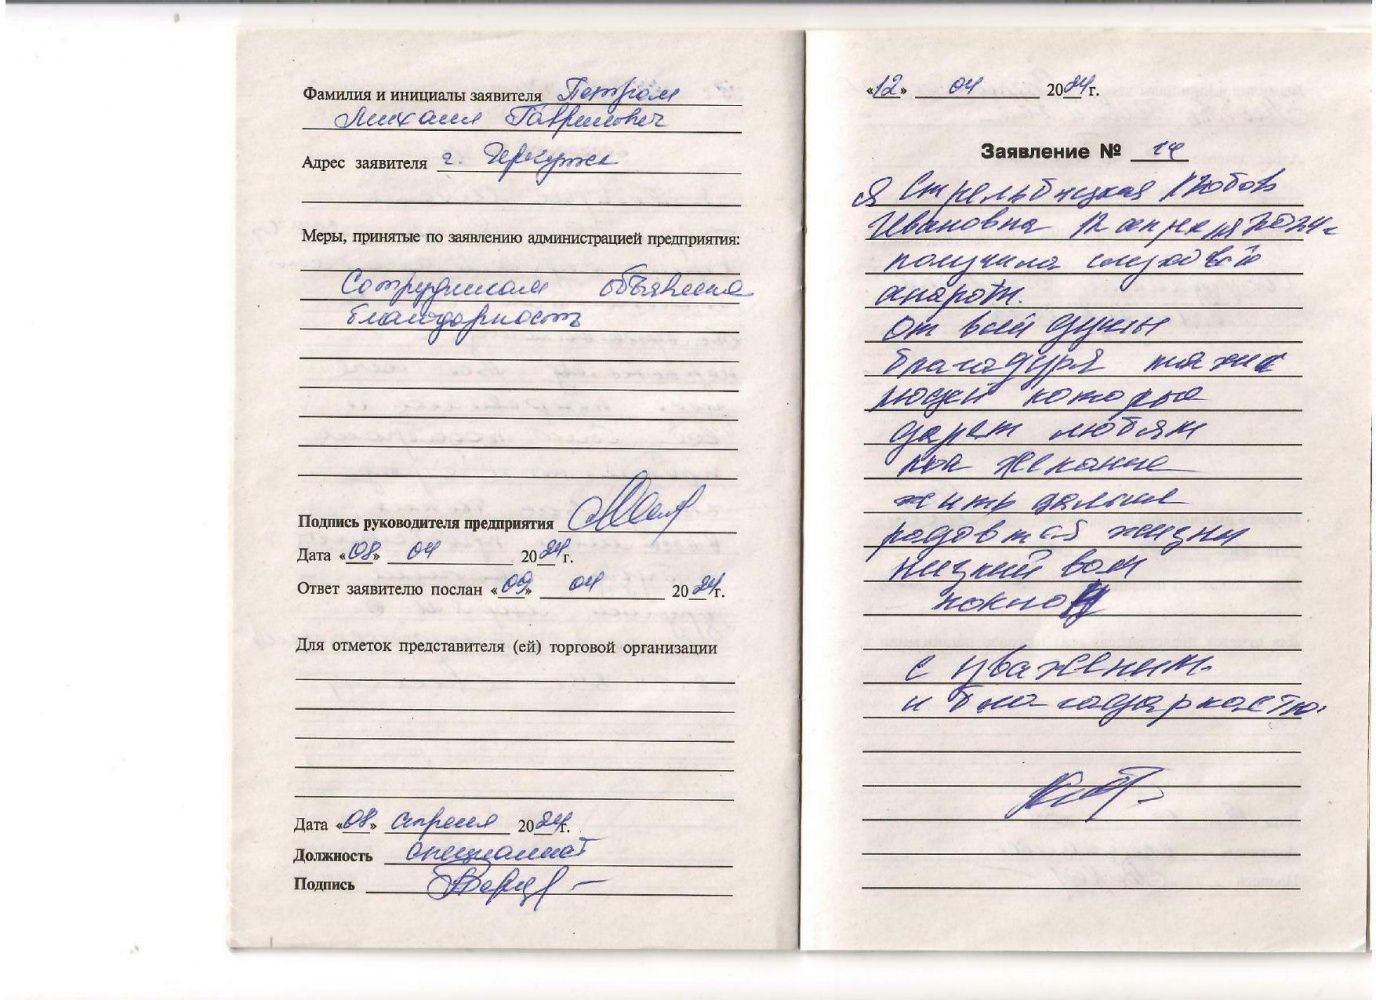 Фамилия и инициалы заявителя
Михаил Гаврилович
Адрес заявителя г.
Меры, принятые по заявлению администрацией предприятия:
Сотрудникам объявлена
благодарность
Подпись руководителя предприятия
Дата «08» 04 2024 г.
Ответ заявителю послан «09» 04 2024 г.
Для отметок представителя (ей) торговой организации
Дата «08» апреля 2024 г.
Должность специалист
Подпись
«12» 04 2024 г.
Заявление № 14
Я Стрельбицкая Любовь
Ивановна 12 апреля 2024г.
получила слуховой
апарат.
От всей души
благодаря таких
людей которые
дарят людям
жить дальше
жизни
низкий вам
поклон
с уважением
и благодарностью